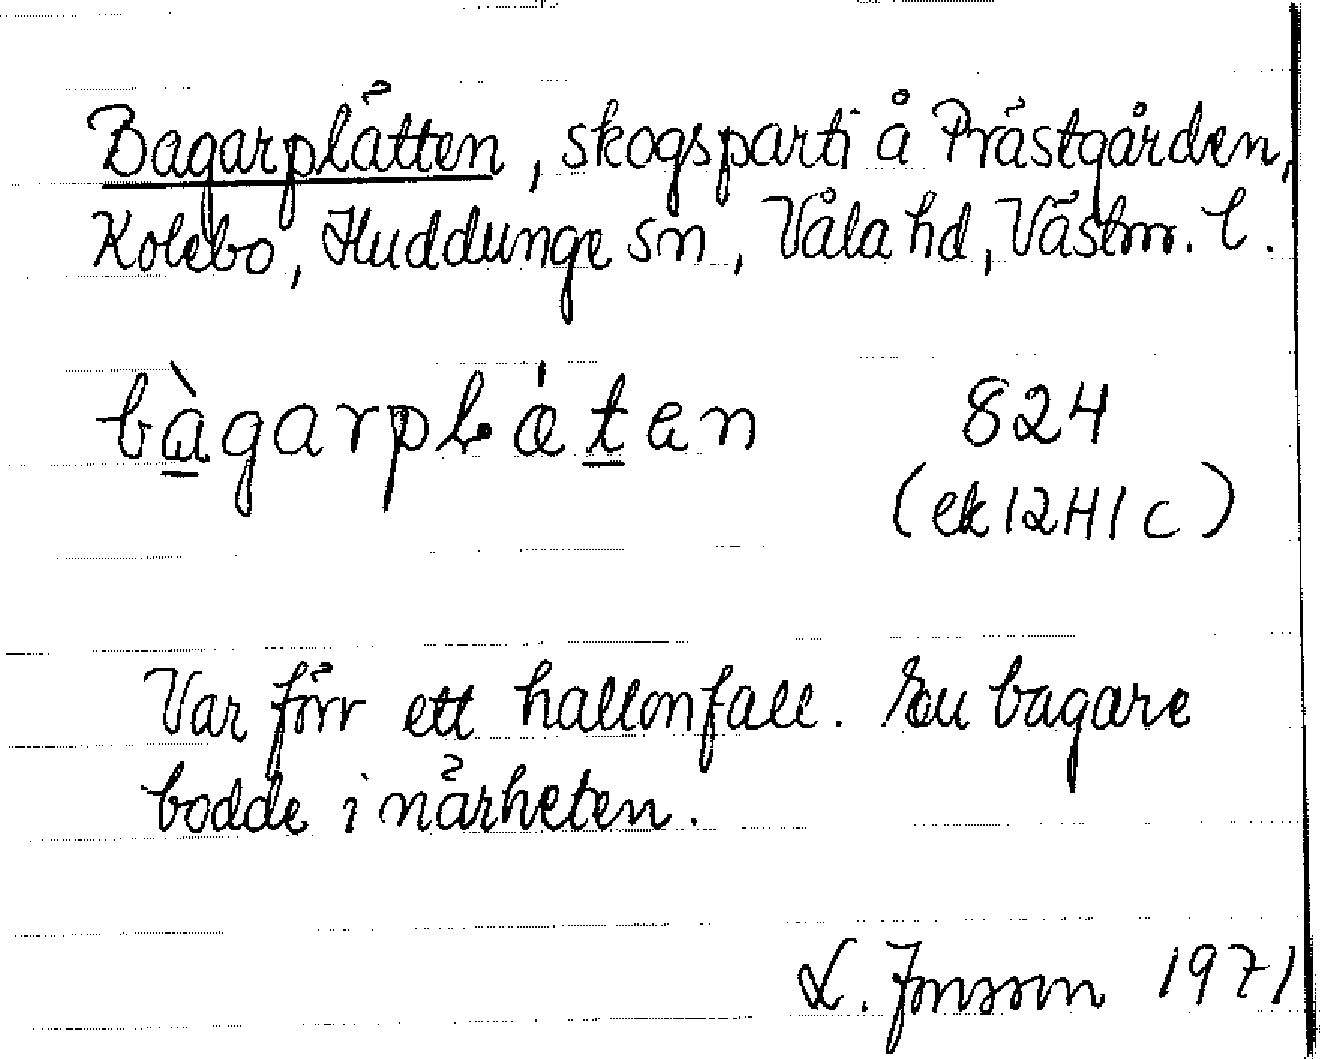 Bagarplätten, skogsparti å Prästgården,
Kolebo, Huddunge sn, Våla hd, Västm. l.
bàgarplǽten 824
(ek 12H1c)
Var förr ett hallonfall. En bagare
bodde i närheten.
L. Jonsson 1971